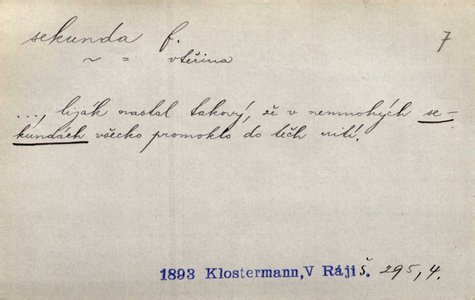 sekunda f. 7
~ = vteřina
..., liják nastal takový, že v nemnohých se-
kundách všecko promoklo do těch nití.
1893 Klostermann,V Ráji š. 295,4.